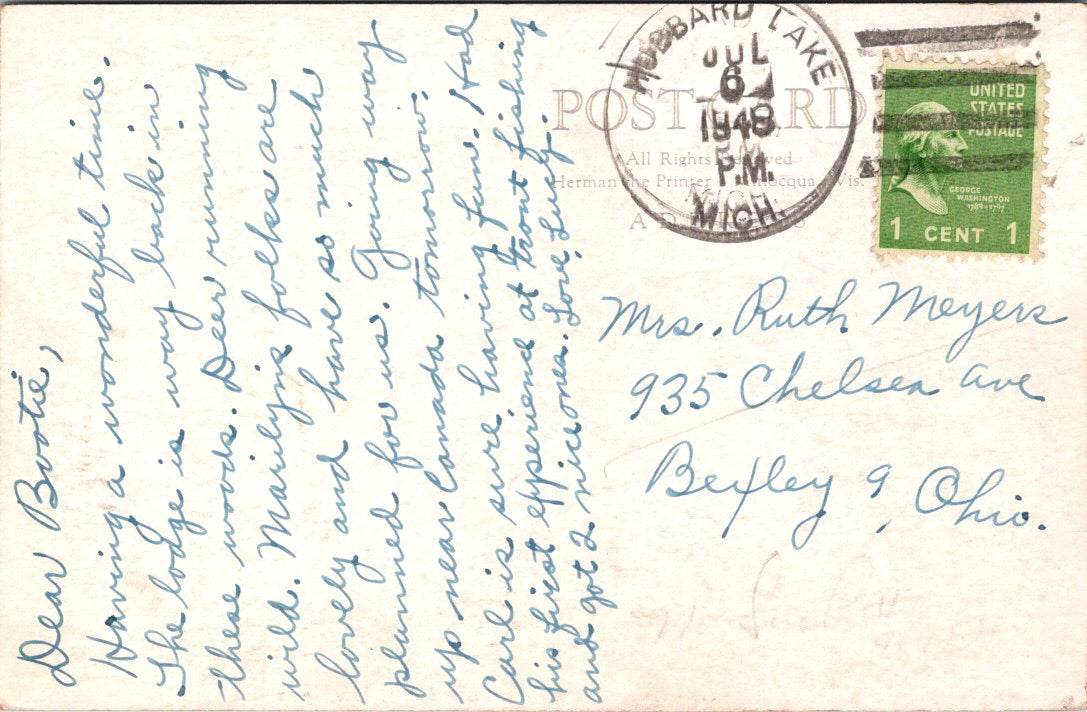 Dear Bootie,
Having a wonderful time.
The lodge is way back in
these woods. Deer running
wild. Marilyn's folks are
lovely and have so much
planned for us. Going way
up near Canada tomorrow.
Carl is sure having fun. Had
his first experience at trout fishing
and got 2 nice ones. Love, Lucy.
HUBBARD LAKE
JUL
6
1948
P.M.
MICH.
POST CARD
All Rights Reserved
Herman the Printer Wis.
UNITED
STATES
POSTAGE
GEORGE
WASHINGTON
1789-1797
1 CENT 1
Mrs. Ruth Meyers
935 Chelsea Ave
Bexley 9, Ohio.